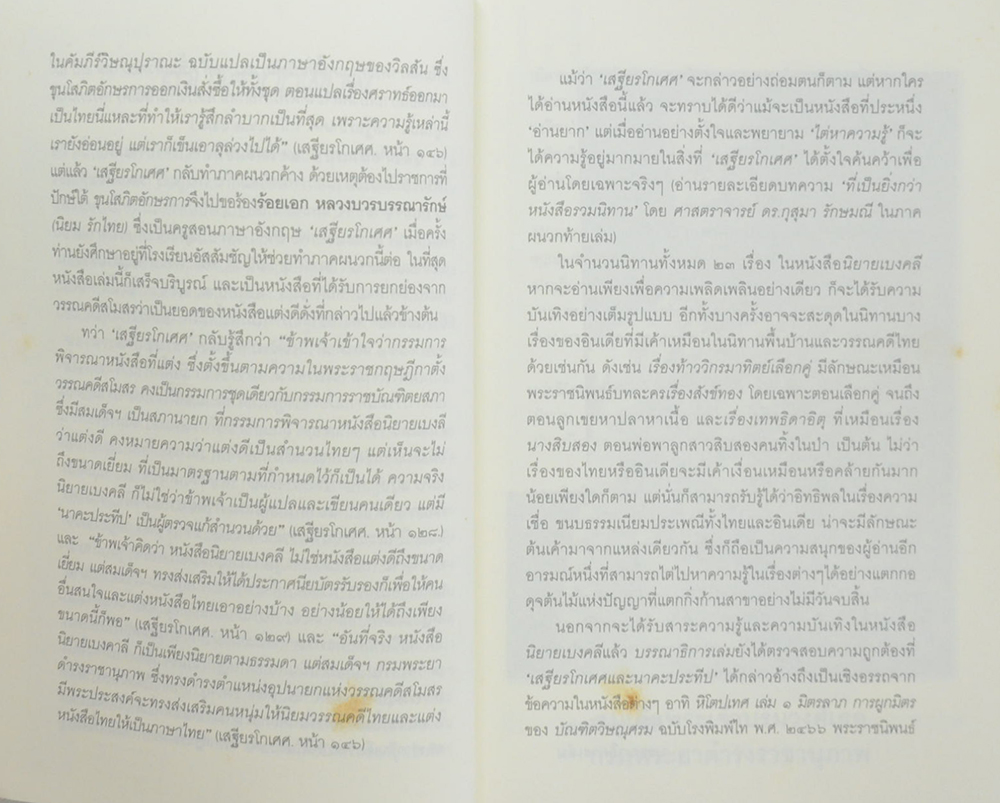 ในคัมภีร์วิษณุปุราณะ ฉบับแปลเป็นภาษาอังกฤษของวิลสัน ซึ่ง
ขุนโสภิตอักษรการออกเงินสั่งซื้อให้ทั้งชุด ตอนแปลเรื่องศราทธ์ออกมา
เป็นไทยนี่แหละที่ทำให้เรารู้สึกลำบากเป็นที่สุด เพราะความรู้เหล่านี้
เรายังอ่อนอยู่ แต่เราก็เข็นเอาลุล่วงไปได้” (เสฐียรโกเศศ. หน้า ๑๔๖)
แต่แล้ว ‘เสฐียรโกเศศ’ กลับทำภาคผนวกค้าง ด้วยเหตุต้องไปราชการที่
ปักษ์ใต้ ขุนโสภิตอักษรการจึงไปขอร้องร้อยเอก หลวงบวรบรรณารักษ์
(นิยม รักไทย) ซึ่งเป็นครูสอนภาษาอังกฤษ ‘เสฐียรโกเศศ’ เมื่อครั้ง
ท่านยังศึกษาอยู่ที่โรงเรียนอัสสัมชัญให้ช่วยทำภาคผนวกนี้ต่อ ในที่สุด
หนังสือเล่มนี้ก็เสร็จบริบูรณ์ และเป็นหนังสือที่ได้รับการยกย่องจาก
วรรณคดีสโมสรว่าเป็นยอดของหนังสือแต่งดีดั่งที่กล่าวไปแล้วข้างต้น
ทว่า ‘เสฐียรโกเศศ’ กลับรู้สึกว่า “ข้าพเจ้าเข้าใจว่ากรรมการ
พิจารณาหนังสือที่แต่ง ซึ่งตั้งขึ้นตามความในพระราชกฤษฎีกาตั้ง
วรรณคดีสโมสร คงเป็นกรรมการชุดเดียวกับกรรมการราชบัณฑิตยสภา
ซึ่งมีสมเด็จฯ เป็นสภานายก ที่กรรมการพิจารณาหนังสือนิยายเบงคลี
ว่าแต่งดี คงหมายความว่าแต่งดีเป็นสำนวนไทยๆ แต่เห็นจะไม่
ถึงขนาดเยี่ยม ที่เป็นมาตรฐานตามที่กำหนดไว้ก็เป็นได้ ความจริง
นิยายเบงคลี ก็ไม่ใช่ว่าข้าพเจ้าเป็นผู้แปลและเขียนคนเดียว แต่มี
‘นาคะประทีป’ เป็นผู้ตรวจแก้สำนวนด้วย” (เสฐียรโกเศศ. หน้า ๑๒๘.)
และ “ข้าพเจ้าคิดว่า หนังสือนิยายเบงคลี ไม่ใช่หนังสือแต่งดีถึงขนาด
เยี่ยม แต่สมเด็จฯ ทรงส่งเสริมให้ได้ประกาศนียบัตรรับรองก็เพื่อให้คน
อื่นสนใจและแต่งหนังสือไทยเอาอย่างบ้าง อย่างน้อยให้ได้ถึงเพียง
ขนาดนี้ก็พอ” (เสฐียรโกเศศ. หน้า ๑๒๙) และ “อันที่จริง หนังสือ
นิยายเบงคาลี ก็เป็นเพียงนิยายตามธรรมดา แต่สมเด็จฯ กรมพระยา
ดำรงราชานุภาพ ซึ่งทรงดำรงตำแหน่งอุปนายกแห่งวรรณคดีสโมสร
มีพระประสงค์จะทรงส่งเสริมคนหนุ่มให้นิยมวรรณคดีไทยและแต่ง
หนังสือไทยให้เป็นภาษาไทย” (เสฐียรโกเศศ. หน้า ๑๔๖)
แม้ว่า ‘เสฐียรโกเศศ’ จะกล่าวอย่างถ่อมตนก็ตาม แต่หากใคร
ได้อ่านหนังสือนี้แล้ว จะทราบได้ดีว่าแม้จะเป็นหนังสือที่ประหนึ่ง
‘อ่านยาก’ แต่เมื่ออ่านอย่างตั้งใจและพยายาม ‘ไต่หาความรู้’ ก็จะ
ได้ความรู้อยู่มากมายในสิ่งที่ ‘เสฐียรโกเศศ’ ได้ตั้งใจค้นคว้าเพื่อ
ผู้อ่านโดยเฉพาะจริงๆ (อ่านรายละเอียดบทความ ‘ที่เป็นยิ่งกว่า
หนังสือรวมนิทาน’ โดย ศาสตราจารย์ ดร.กุสุมา รักษมณี ในภาค
ผนวกท้ายเล่ม)
ในจำนวนนิทานทั้งหมด ๒๓ เรื่อง ในหนังสือนิยายเบงคลี
หากจะอ่านเพียงเพื่อความเพลิดเพลินอย่างเดียว ก็จะได้รับความ
บันเทิงอย่างเต็มรูปแบบ อีกทั้งบางครั้งอาจจะสะดุดในนิทานบาง
เรื่องของอินเดียที่มีเค้าเหมือนในนิทานพื้นบ้านและวรรณคดีไทย
ด้วยเช่นกัน ดังเช่น เรื่องท้าววิกรมาทิตย์เลือกคู่ มีลักษณะเหมือน
พระราชนิพนธ์บทละครเรื่องสังข์ทอง โดยเฉพาะตอนเลือกคู่ จนถึง
ตอนลูกเขยหาปลาหาเนื้อ และเรื่องเทพธิดาอิตุ ที่เหมือนเรื่อง
นางสิบสอง ตอนพ่อพาลูกสาวสิบสองคนทิ้งในป่า เป็นต้น ไม่ว่า
เรื่องของไทยหรืออินเดียจะมีเค้าเงื่อนเหมือนหรือคล้ายกันมาก
น้อยเพียงใดก็ตาม แต่นั่นก็สามารถรับรู้ได้ว่าอิทธิพลในเรื่องความ
เชื่อ ขนบธรรมเนียมประเพณีทั้งไทยและอินเดีย น่าจะมีลักษณะ
ต้นเค้ามาจากแหล่งเดียวกัน ซึ่งก็ถือเป็นความสนุกของผู้อ่านอีก
อารมณ์หนึ่งที่สามารถไต่ไปหาความรู้ในเรื่องต่างๆได้อย่างแตกกอ
ดุจต้นไม้แห่งปัญญาที่แตกกิ่งก้านสาขาอย่างไม่มีวันจบสิ้น
นอกจากจะได้รับสาระความรู้และความบันเทิงในหนังสือ
นิยายเบงคลีแล้ว บรรณาธิการเล่มยังได้ตรวจสอบความถูกต้องที่
‘เสฐียรโกเศศและนาคะประทีป’ ได้กล่าวอ้างถึงเป็นเชิงอรรถจาก
ข้อความในหนังสือต่างๆ อาทิ หิโตปเทศ เล่ม ๑ มิตรลาภ การผูกมิตร
ของ บัณฑิตวิษณุศรม ฉบับโรงพิมพ์ไท พ.ศ. ๒๔๖๖ พระราชนิพนธ์